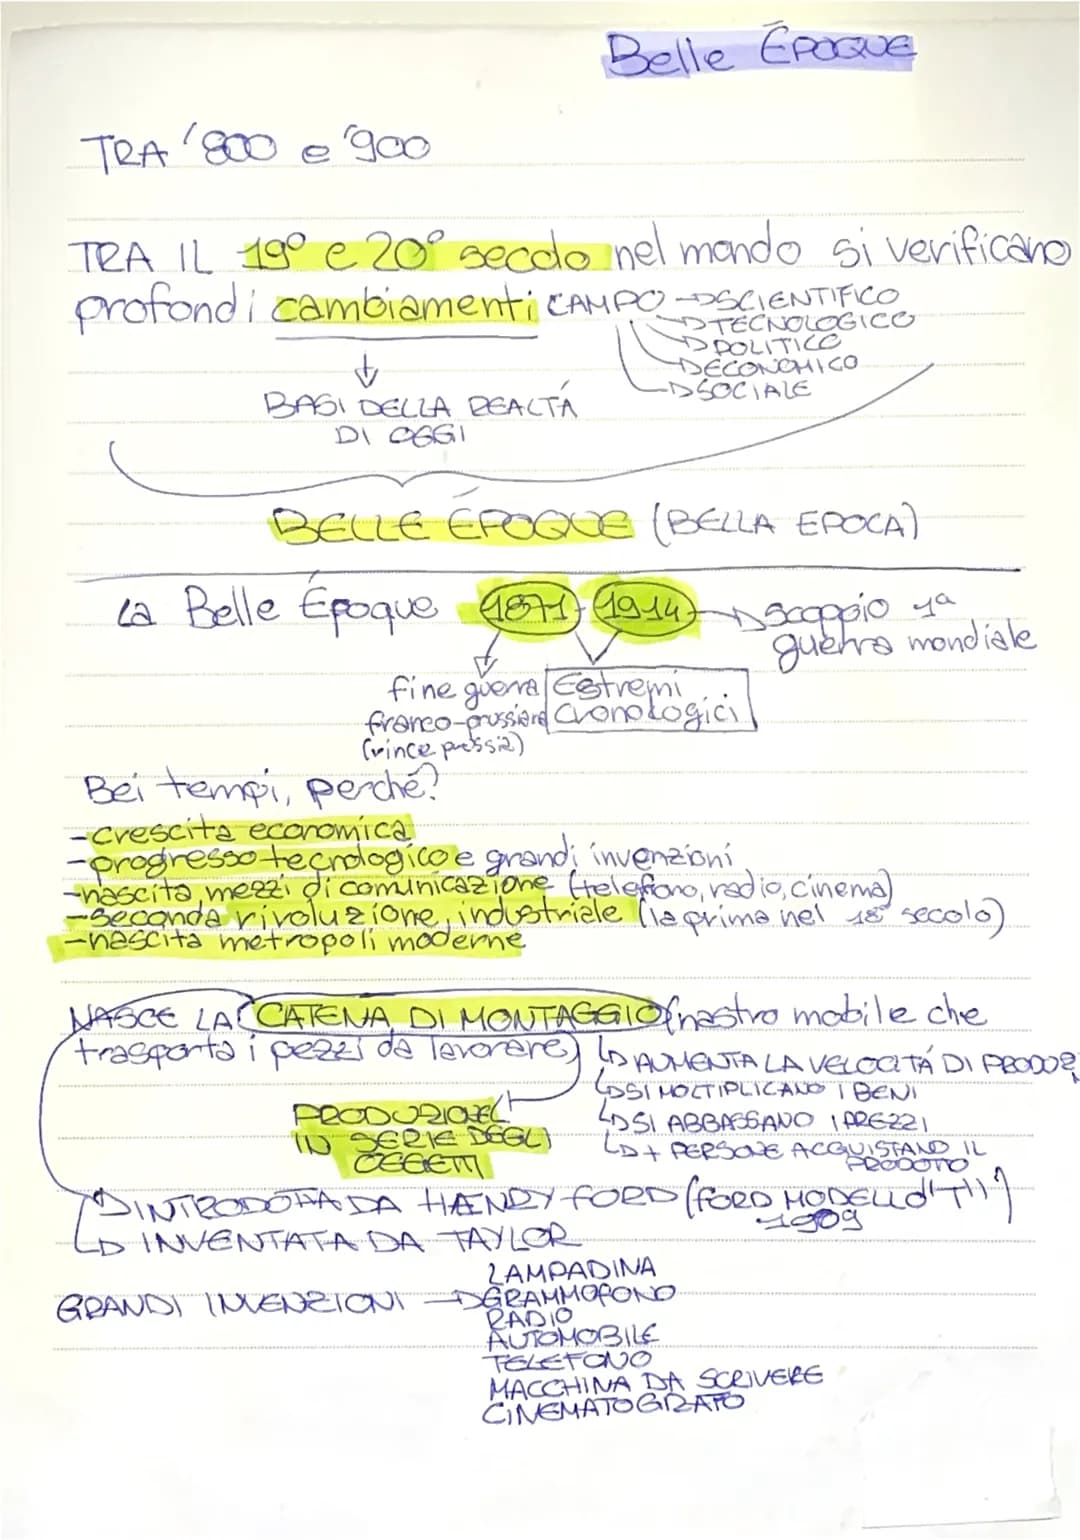 Belle ÉPOQUE
TRA '800 e '900
TRA IL 19° e 20° secolo nel mondo si verificano
profondi cambiamenti CAMPO → SCIENTIFICO
→ TECNOLOGICO
→ POLITICO
→ ECONOMICO
→ SOCIALE
↓
BASI DELLA REALTÁ
DI OGGI
BELLE ÉPOQUE (BELLA EPOCA)
La Belle Époque 1871 - 1914 → scoppio 1ª
guerra mondiale
fine guerra
franco-prussiana
(vince prussia)
Estremi
cronologici
Bei tempi, perché?
- crescita economica
- progresso tecnologico e grandi invenzioni
- nascita mezzi di comunicazione (telefono, radio, cinema)
- seconda rivoluzione industriale (la prima nel 18° secolo)
- nascita metropoli moderne
NASCE LA CATENA DI MONTAGGIO (nastro mobile che
trasporta i pezzi da lavorare)
→ AUMENTA LA VELOCITÁ DI PRODUZ.
→ SI MOLTIPLICANO I BENI
→ SI ABBASSANO I PREZZI
→ + PERSONE ACQUISTANO IL
PRODOTTO
PRODUZIONE
IN SERIE DEGLI
OGGETTI
→ INTRODOTTA DA HENRY FORD (FORD MODELLO "T")
1909
→ INVENTATA DA TAYLOR
GRANDI INVENZIONI → LAMPADINA
GRAMMOFONO
RADIO
AUTOMOBILE
TELEFONO
MACCHINA DA SCRIVERE
CINEMATOGRAFO